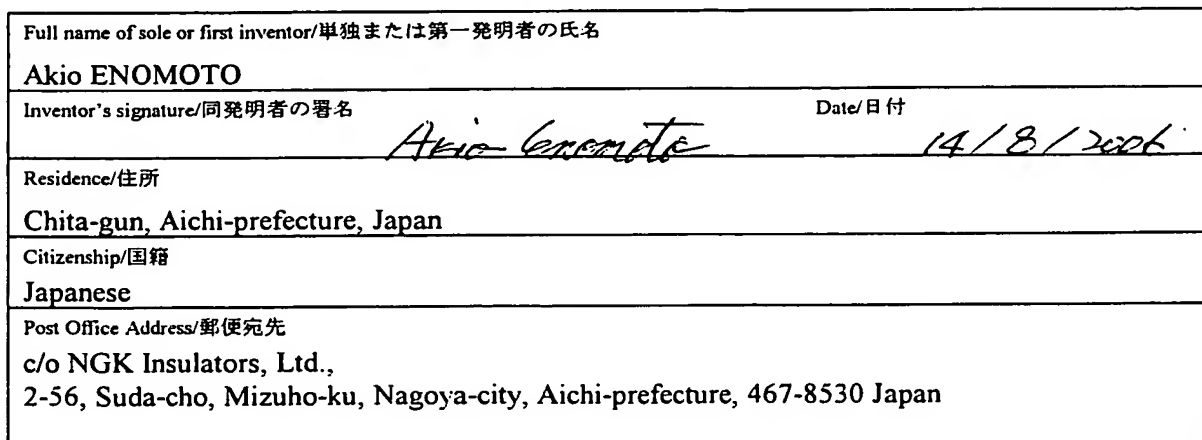 Full name of sole or first inventor/単独または第一発明者の氏名
Akio ENOMOTO
Inventor's signature/同発明者の署名 Date/日付
Akio Enomoto 14/8/2006
Residence/住所
Chita-gun, Aichi-prefecture, Japan
Citizenship/国籍
Japanese
Post Office Address/郵便宛先
c/o NGK Insulators, Ltd.,
2-56, Suda-cho, Mizuho-ku, Nagoya-city, Aichi-prefecture, 467-8530 Japan